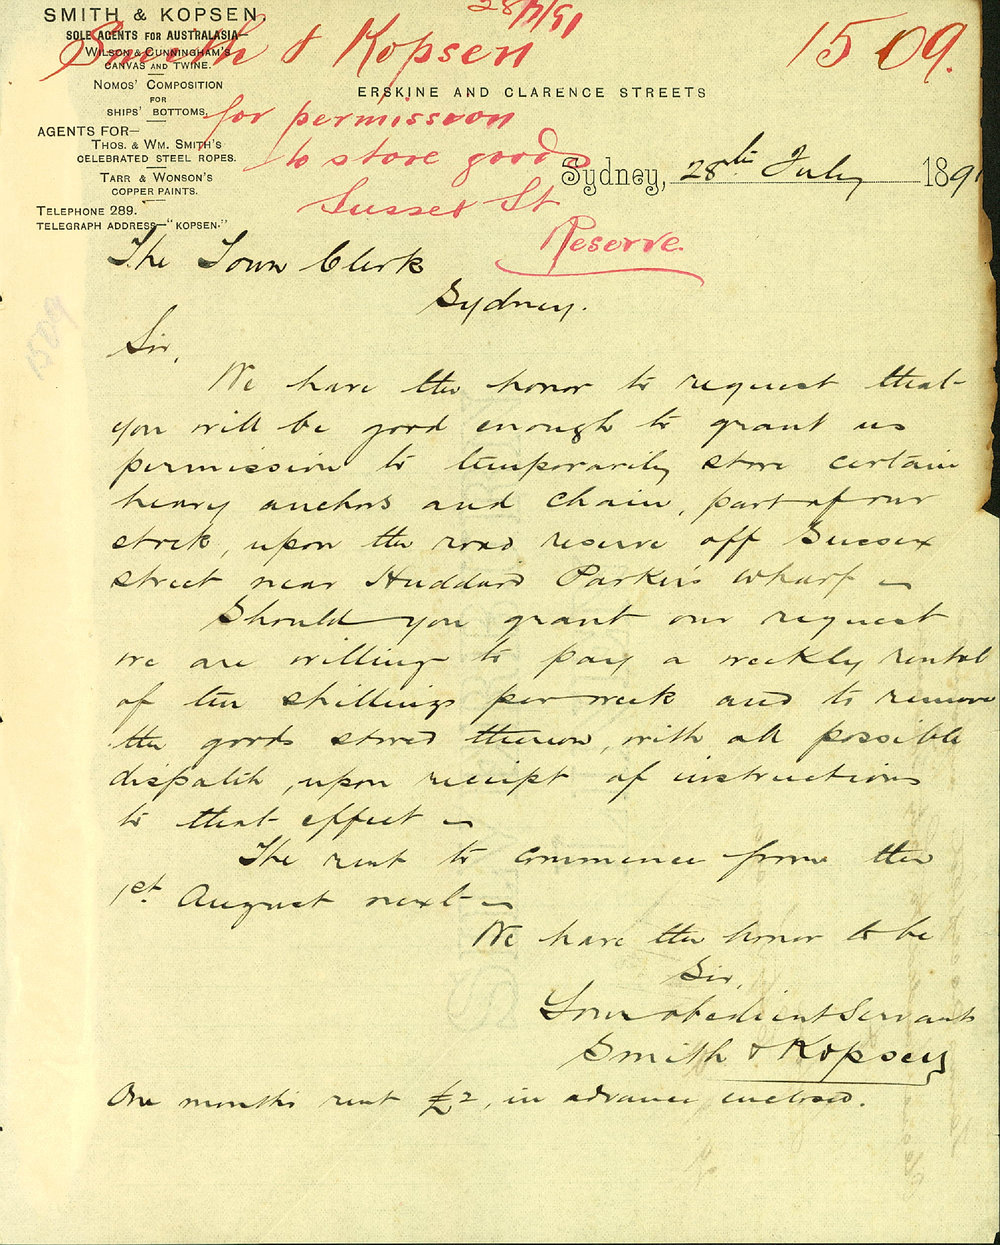 SMITH & KOPSEN,
SOLE AGENTS FOR AUSTRALASIA—
WILSON & CUNNINGHAM'S
CANVAS AND TWINE.
NOMOS' COMPOSITION
FOR
SHIPS' BOTTOMS,
AGENTS FOR—
THOS. & WM. SMITH'S
CELEBRATED STEEL ROPES.
TARR & WONSON'S
COPPER PAINTS.
TELEPHONE 289.
TELEGRAPH ADDRESS—"KOPSEN."
28/7/91
Smith & Kopsen
1509.
ERSKINE AND CLARENCE STREETS
for permission
to store goods
Sussex St
Reserve.
Sydney, 28th July 1891
The Town Clerk
Sydney.
Sir,
We have the honor to request that
you will be good enough to grant us
permission to temporarily store certain
heavy anchors and chain, part of our
stock, upon the road reserve off Sussex
street near Huddard Parker's wharf —
Should you grant our request
we are willing to pay a weekly rental
of ten shillings per week and to remove
the goods stored thereon, with all possible
dispatch, upon receipt of instructions
to that effect —
The rent to commence from the
1st. August next —
We have the honor to be
Sir,
Your obedient Servants
Smith & Kopsen
One months rent £2, in advance enclosed.
1509